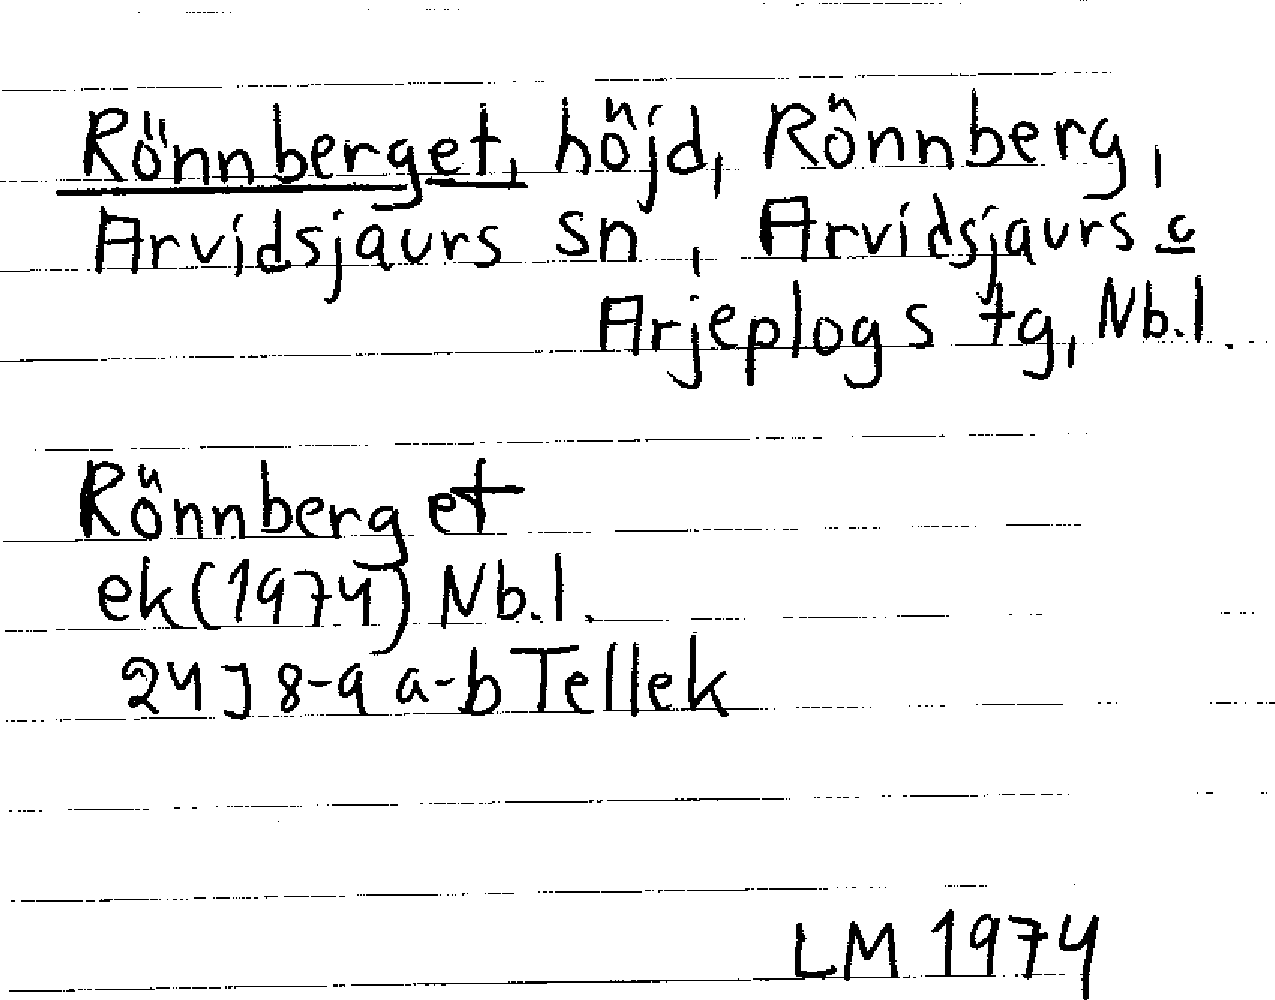 Rönnberget, höjd, Rönnberg,
Arvidsjaurs sn, Arvidsjaurs o
Arjeplogs tg, Nb.l.
Rönnberget
ek (1974) Nb.l.
24J 8-9 a-b Tellek
LM 1974